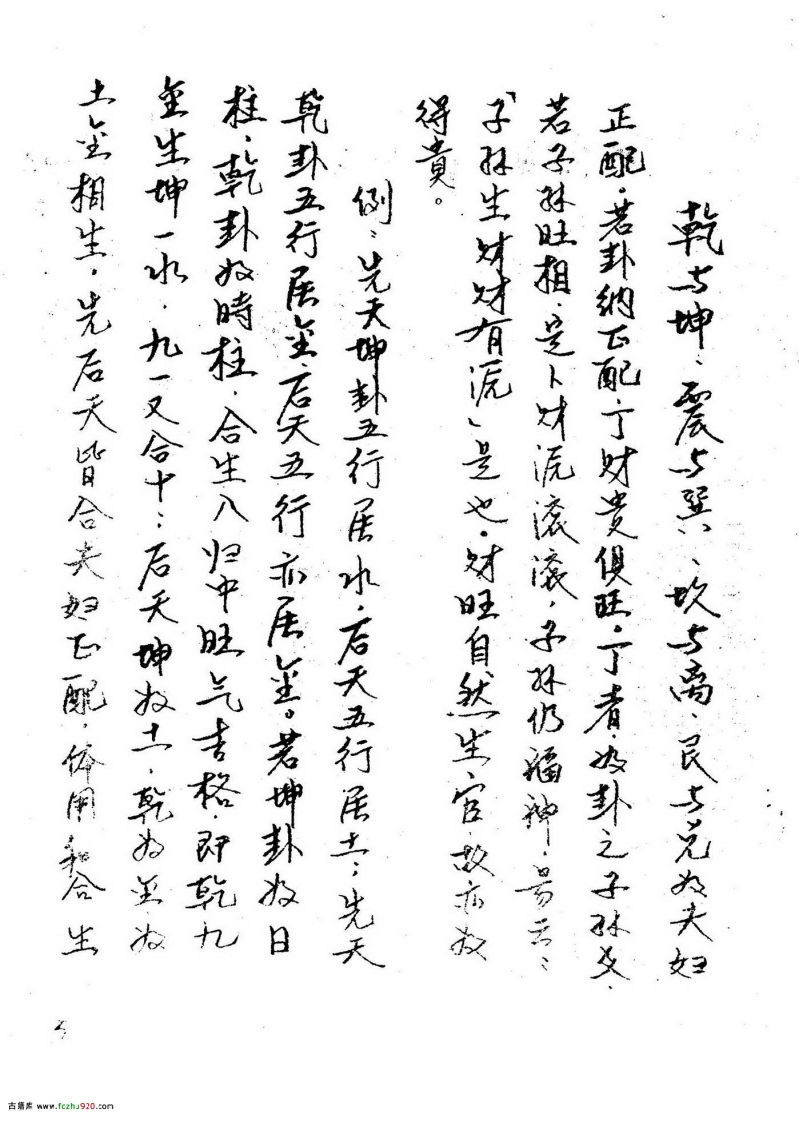 乾与坤、震与巽、坎与离、艮与兑为夫妇
正配。若卦纳正配,丁财贵俱旺。丁者,为卦之子孙爻,
若子孙旺相,定卜财源滚滚,子孙仍福神,易云:
「子孙生财财有源」是也。财旺自然生官,故亦为
得贵。
例:先天坤卦五行居水,后天五行居土;先天
乾卦五行居金,后天五行亦居金。若坤卦为日
柱,乾卦为时柱,合生入归中旺气吉格,即乾九
金生坤一水,九一又合十;后天坤为土,乾为金,为
土金相生,先后天皆合夫妇正配,体用和合生
5
古籍库 www.fczhu920.com